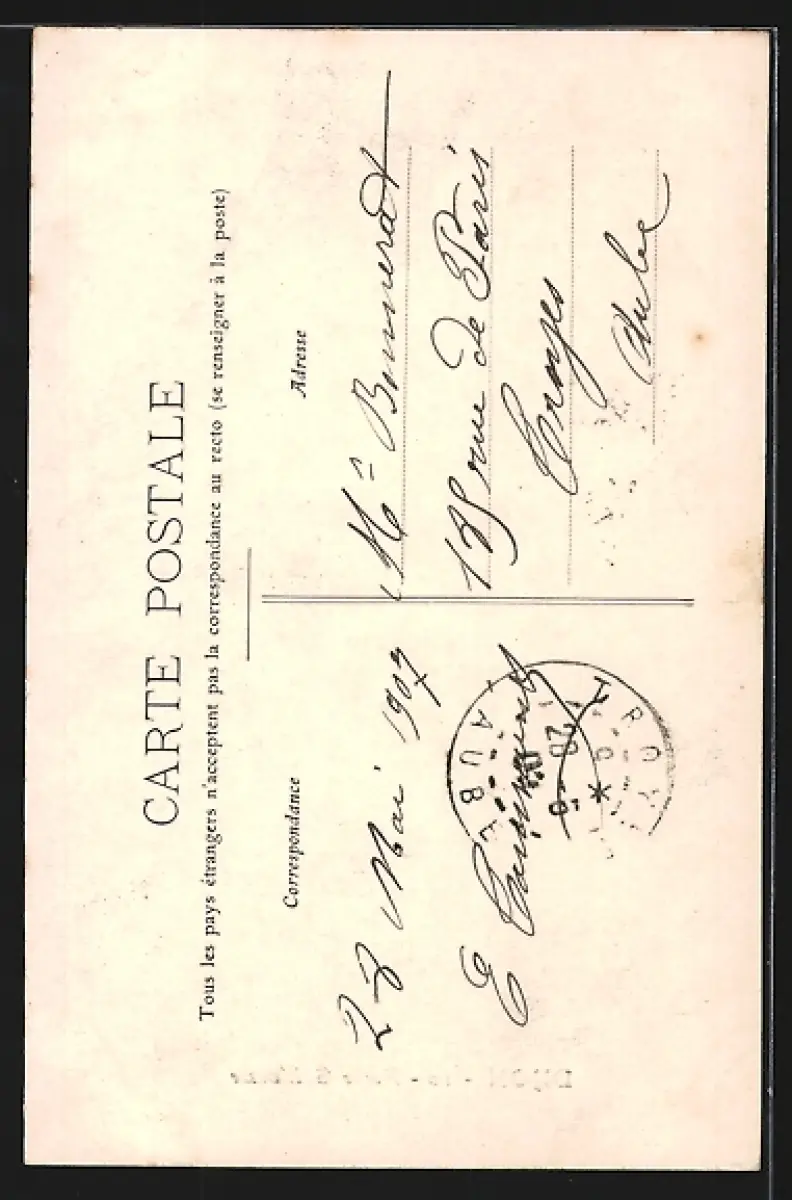 CARTE POSTALE
Tous les pays étrangers n'acceptent pas la correspondance au recto (se renseigner à la poste)
Correspondance
23 Mai 1907
E
Adresse
Mr Bonnerot
135 rue de Paris
Troyes
Aube
TROYES
AUBE